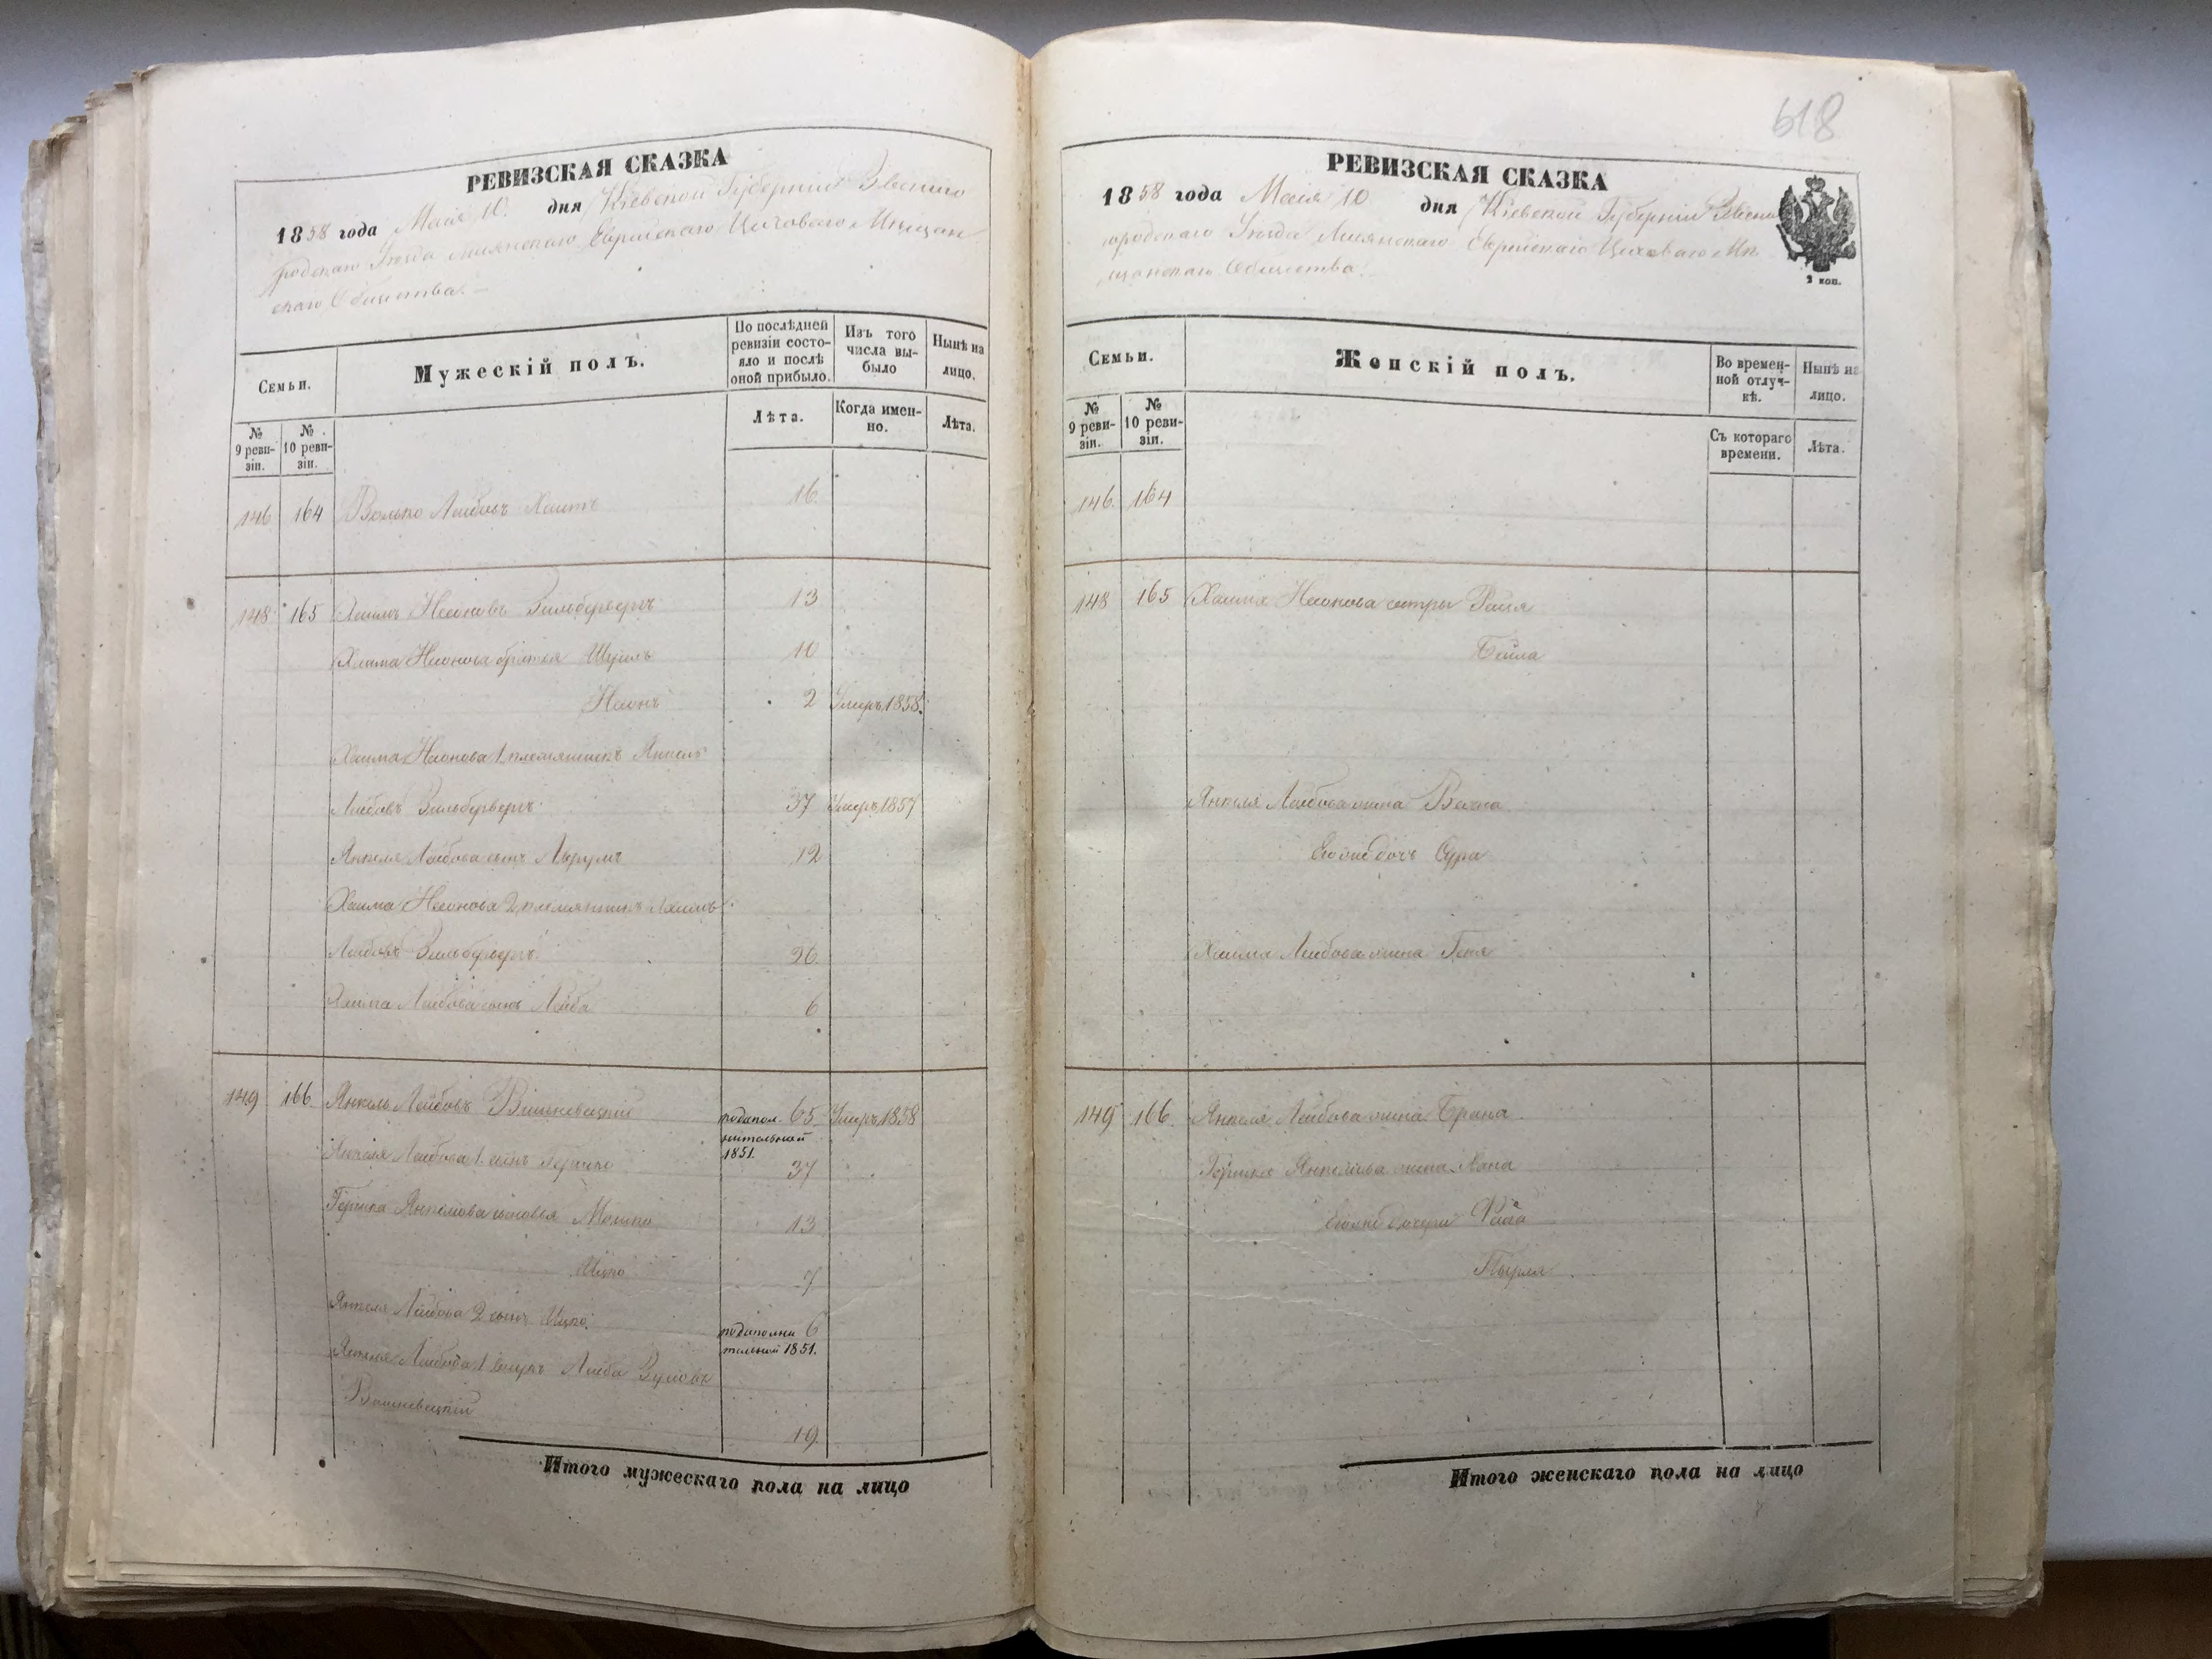 РЕВИЗСКАЯ СКАЗКА
1858 года Маія 10 дня Кіевской Губерніи Звениго
родскаго Уѣзда Лисянскаго Еврейскаго Цеховаго Мѣщан
скаго Общества.
Семьи.
Мужескій полъ.
По послѣдней ревизіи состо-
яло и послѣ
оной прибыло.
Изъ того
числа вы-
было
Нынѣ на
лицо.
№
9 реви-
зіи.
№
10 реви-
зіи.
Лѣта.
Когда имен-
но.
Лѣта.
146 164 Волько Лейбовъ 16
148 165 Хаимъ Зильбервергъ 13
Хаима братья 10
2 Умеръ 1858
Хаима 1 племянникъ Янкель
Лейбовъ Зильбервергъ 37 Умеръ 1857
Янкеля Лейбова сынъ 12
Хаима 2 племянникъ Хаимъ
Лейбовъ Зильбервергъ 26
Хаима Лейбова сынъ Лейба 6
149 166 Янкель Лейбовъ Вишневецкій подопол- 65 Умеръ 1858
нительной
1851.
Янкеля Лейбова 1 сынъ 37
Гершка Янкелева сыновья Мошко 13
Ицко 7
Янкеля Лейбова 2 сынъ Ицко подополни 6
тельной 1851.
Янкеля Лейбова 1 внукъ Лейба
Вишневецкій
19
Итого мужескаго пола на лицо
618
РЕВИЗСКАЯ СКАЗКА
1858 года Маія 10 дня Кіевской Губерніи Звени
городскаго Уѣзда Лисянскаго Еврейскаго Цеховаго Мѣ
щанскаго Общества.
2 коп.
Семьи.
Женскій полъ.
Во времен-
ной отлуч-
кѣ.
Нынѣ на
лицо.
№
9 реви-
зіи.
№
10 реви-
зіи.
Съ котораго
времени.
Лѣта.
146 164
148 165 Хаима сестры
Бейла
Янкеля Лейбова жена
Ево дочь Сура
Хаима Лейбова жена
149 166 Янкеля Лейбова жена
Гершка Янкелева жена Хана
дочери
Итого женскаго пола на лицо